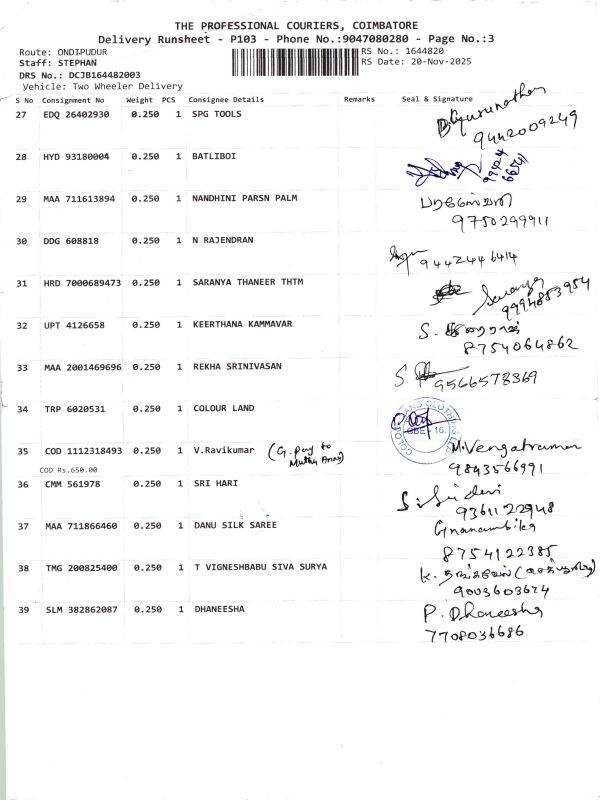 THE PROFESSIONAL COURIERS, COIMBATORE
Delivery Runsheet - P103 - Phone No.:9047080280 - Page No.:3
Route: ONDIPUDUR
RS No.: 1644820
Staff: STEPHAN
RS Date: 20-Nov-2025
DRS No.: DCJB164482003
Vehicle: Two Wheeler Delivery
S No Consignment No Weight PCS Consignee Details Remarks Seal & Signature
27 EDQ 26402930 0.250 1 SPG TOOLS
9442009249
28 HYD 93180004 0.250 1 BATLIBOI
29 MAA 711613894 0.250 1 NANDHINI PARSN PALM
9750299911
30 DDG 608818 0.250 1 N RAJENDRAN
9442446414
31 HRD 7000689473 0.250 1 SARANYA THANEER THTM
Saranya
9994853954
32 UPT 4126658 0.250 1 KEERTHANA KAMMAVAR
8754064862
33 MAA 2001469696 0.250 1 REKHA SRINIVASAN
9566578369
34 TRP 6020531 0.250 1 COLOUR LAND
35 COD 1112318493 0.250 1 V.Ravikumar (G.Pay to
Muthu Anna)
M.Vengatraman
COD Rs.650.00
9843566991
36 CMM 561978 0.250 1 SRI HARI
S. Sridevi
9361122948
37 MAA 711866460 0.250 1 DANU SILK SAREE
Gnanambika
8754122385
38 TMG 200825400 0.250 1 T VIGNESHBABU SIVA SURYA
9003603674
39 SLM 382862087 0.250 1 DHANEESHA
P. Dhaneesha
7708036686